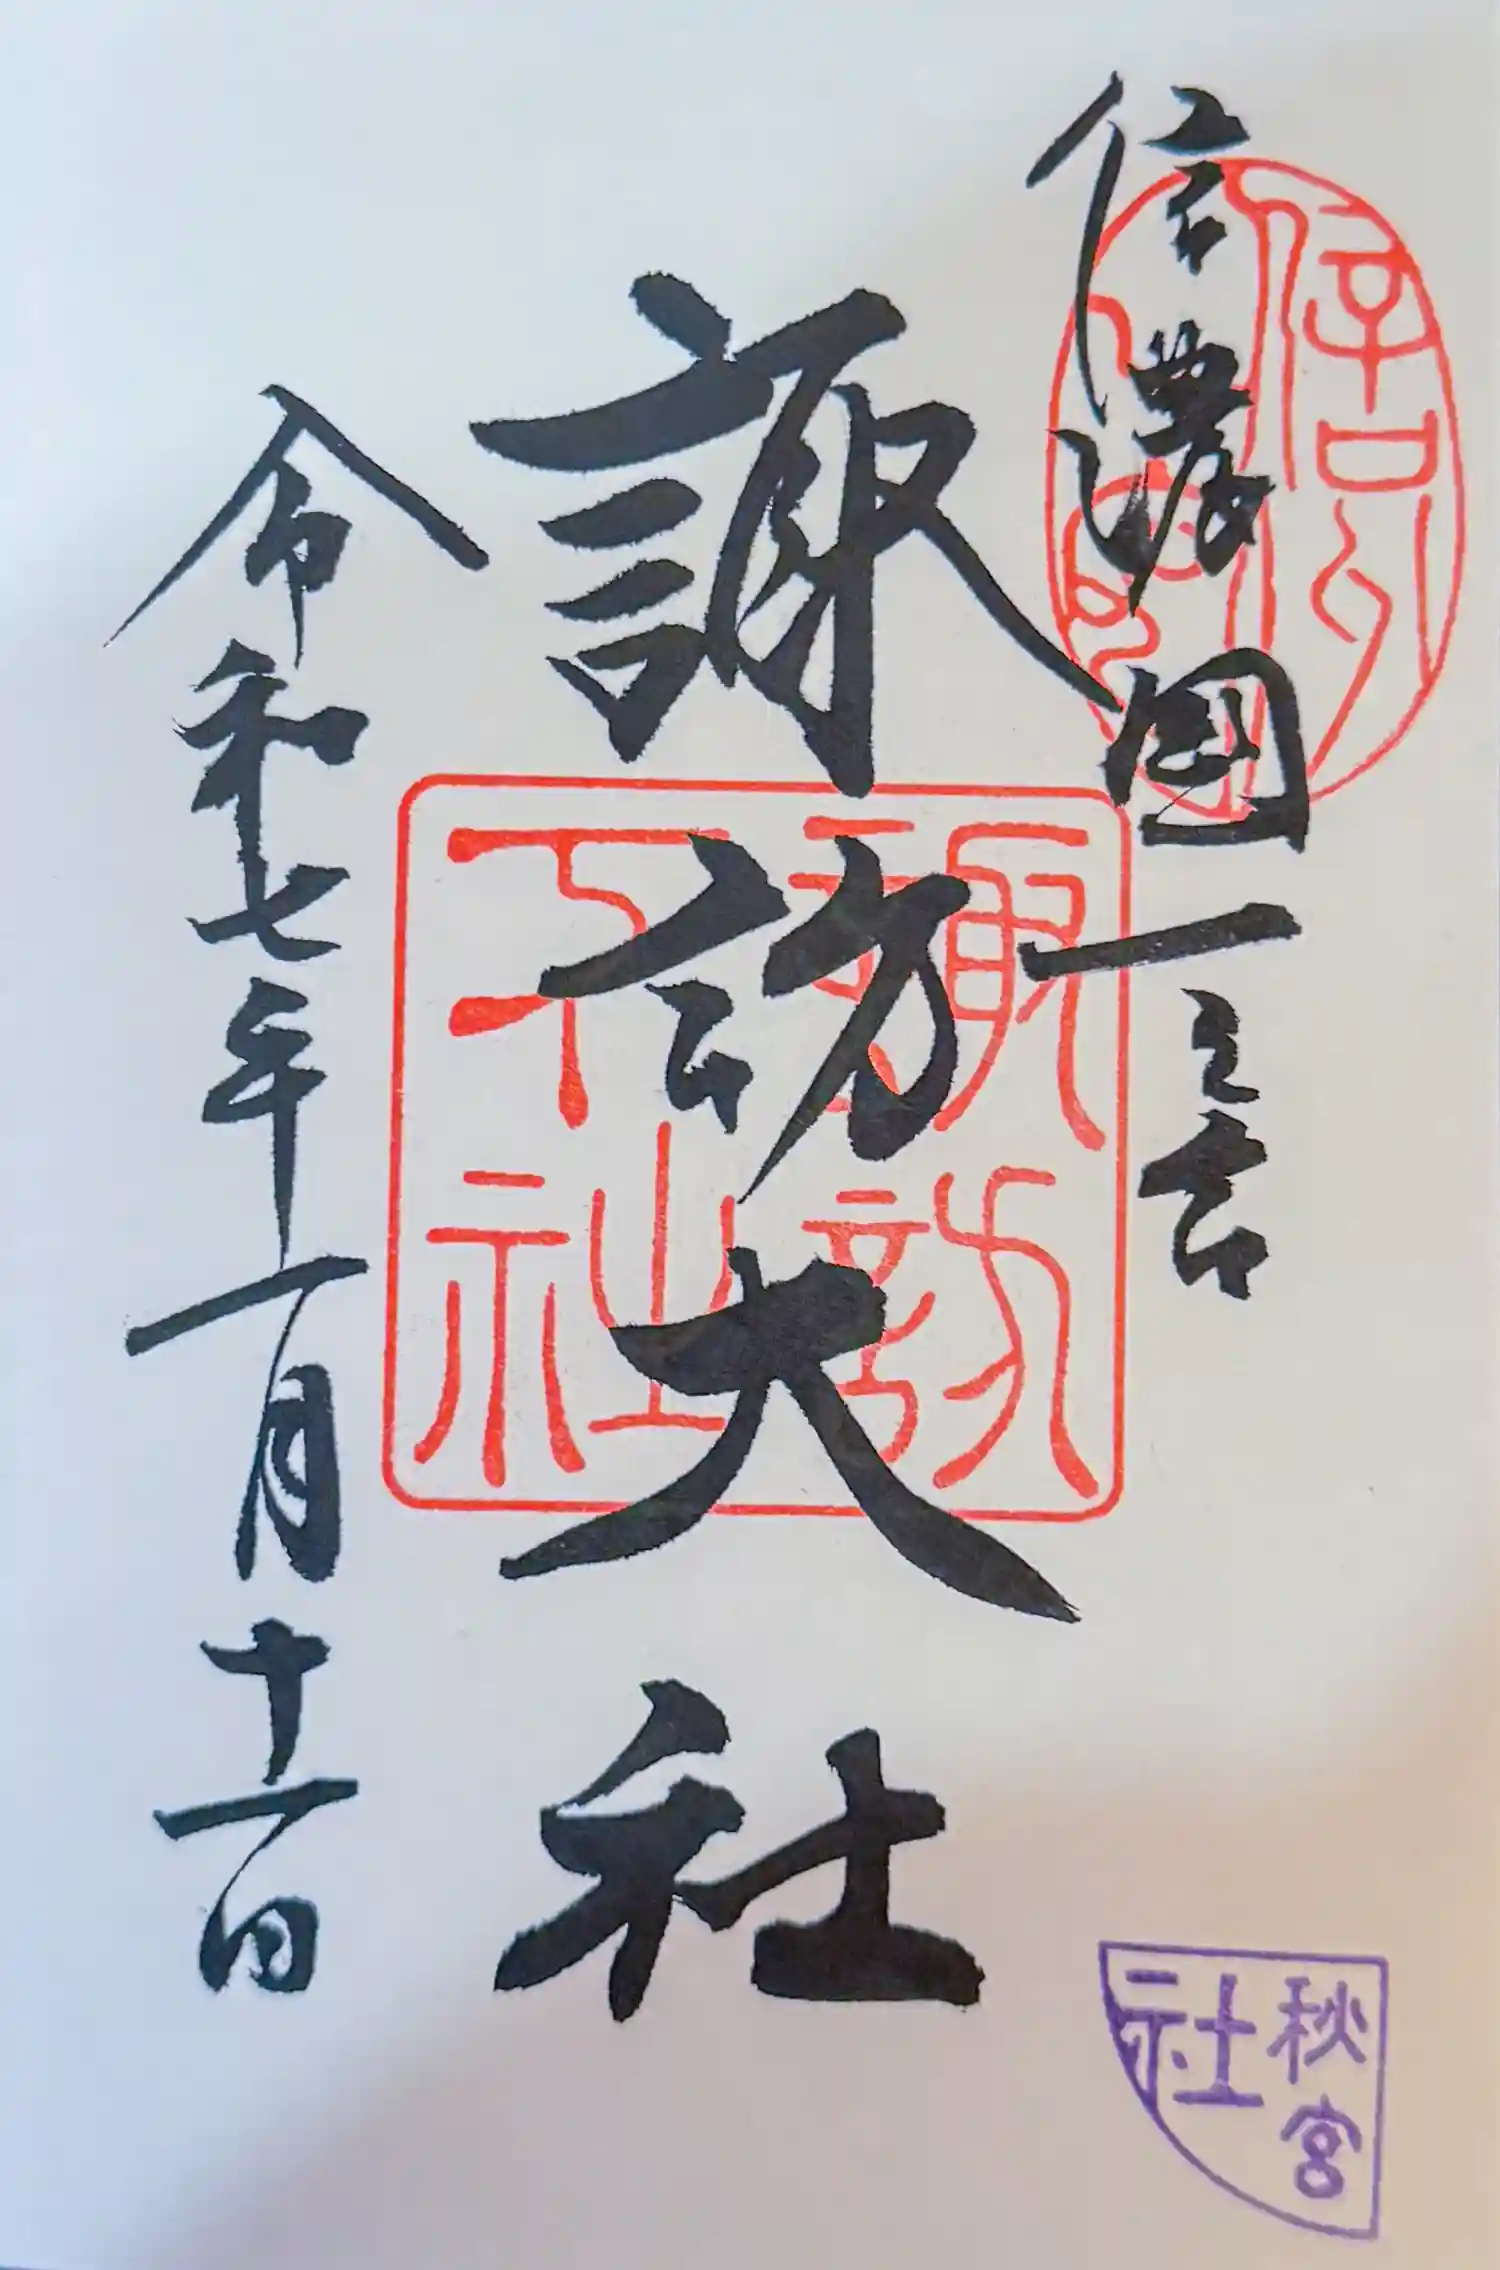 信濃国一之宮
諏訪大社
令和七年一月十一日
諏訪
下社
秋宮
社